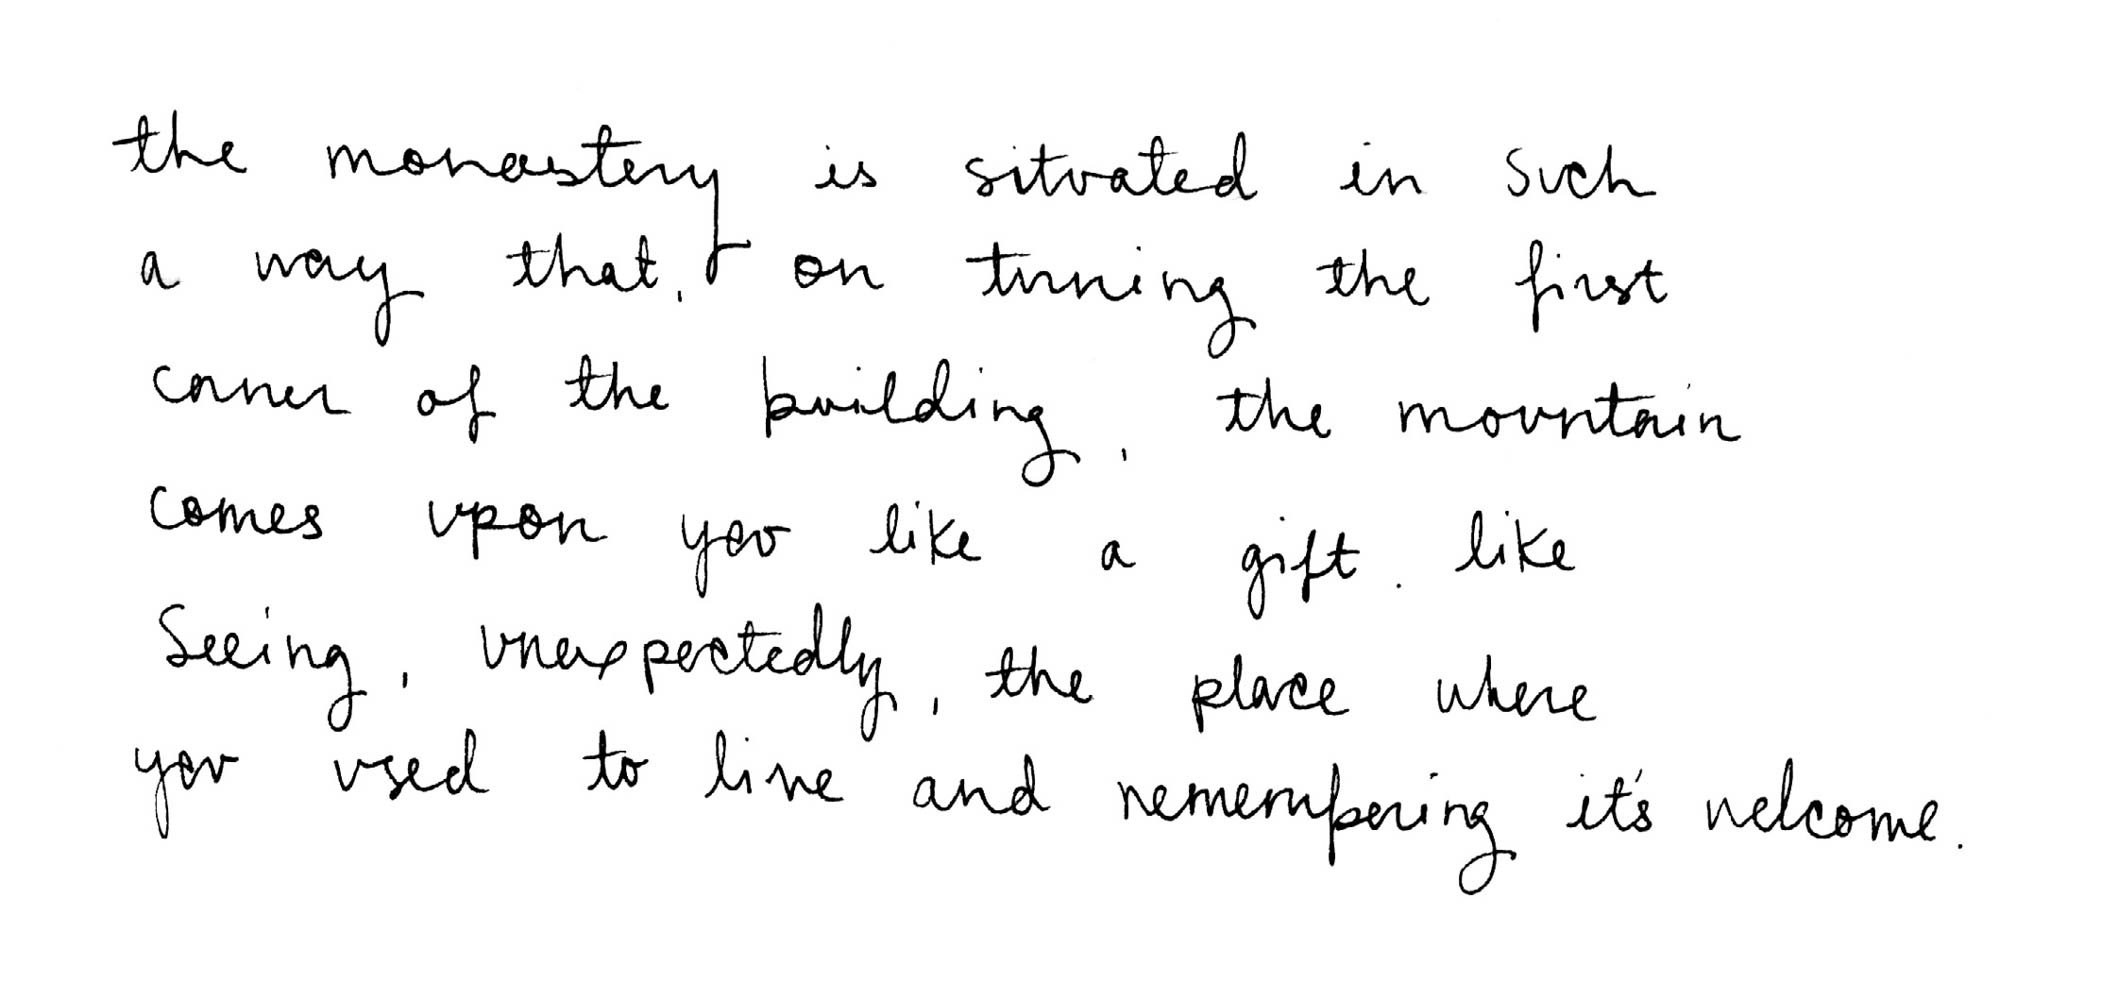 the monastery is situated in such
a way that, on turning the first
corner of the building, the mountain
comes upon you like a gift. like
Seeing, unexpectedly, the place where
you used to live and remembering it's welcome.